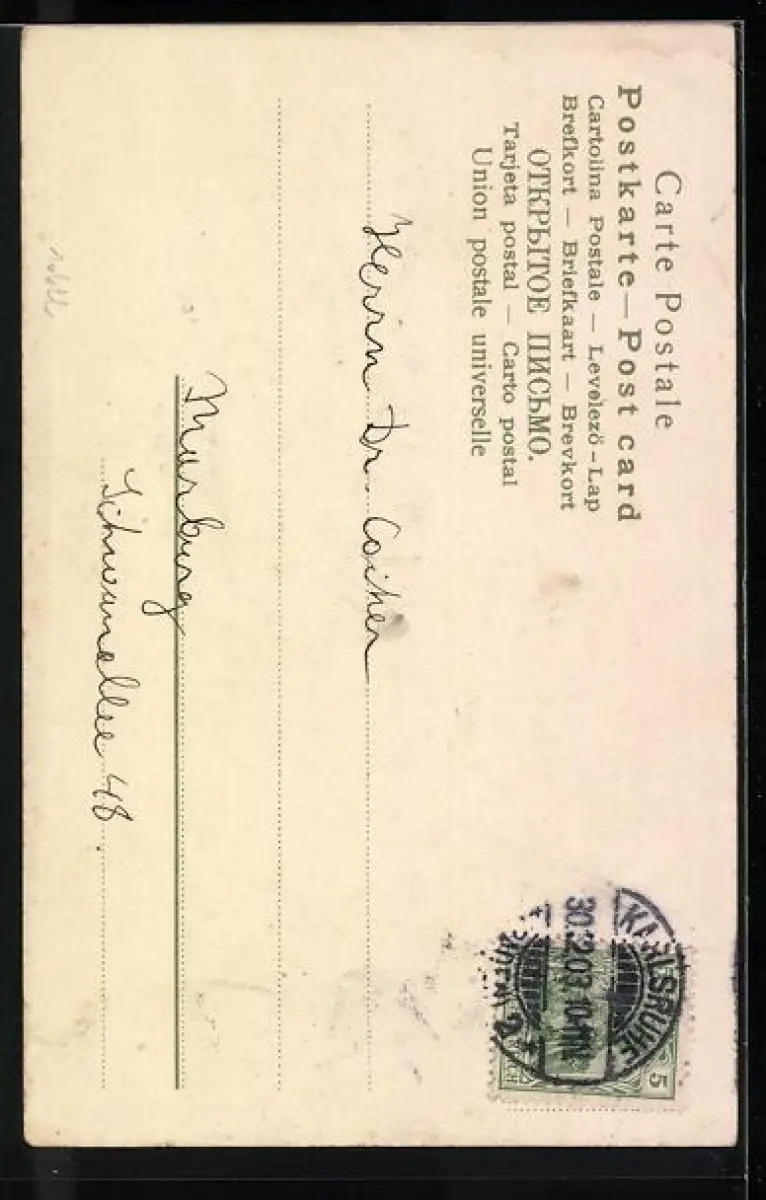 Carte Postale
Postkarte — Post card
Cartolina Postale — Levelező-Lap
Brefkort — Briefkaart — Brevkort
ОТКРЫТОЕ ПИСЬМО.
Tarjeta postal — Carto postal
Union postale universelle
KARLSRUHE
30.12.03. 10-11N.
(BADEN) 2
5
CH
Herrn Dr.
Marburg
Schwanallee 48.